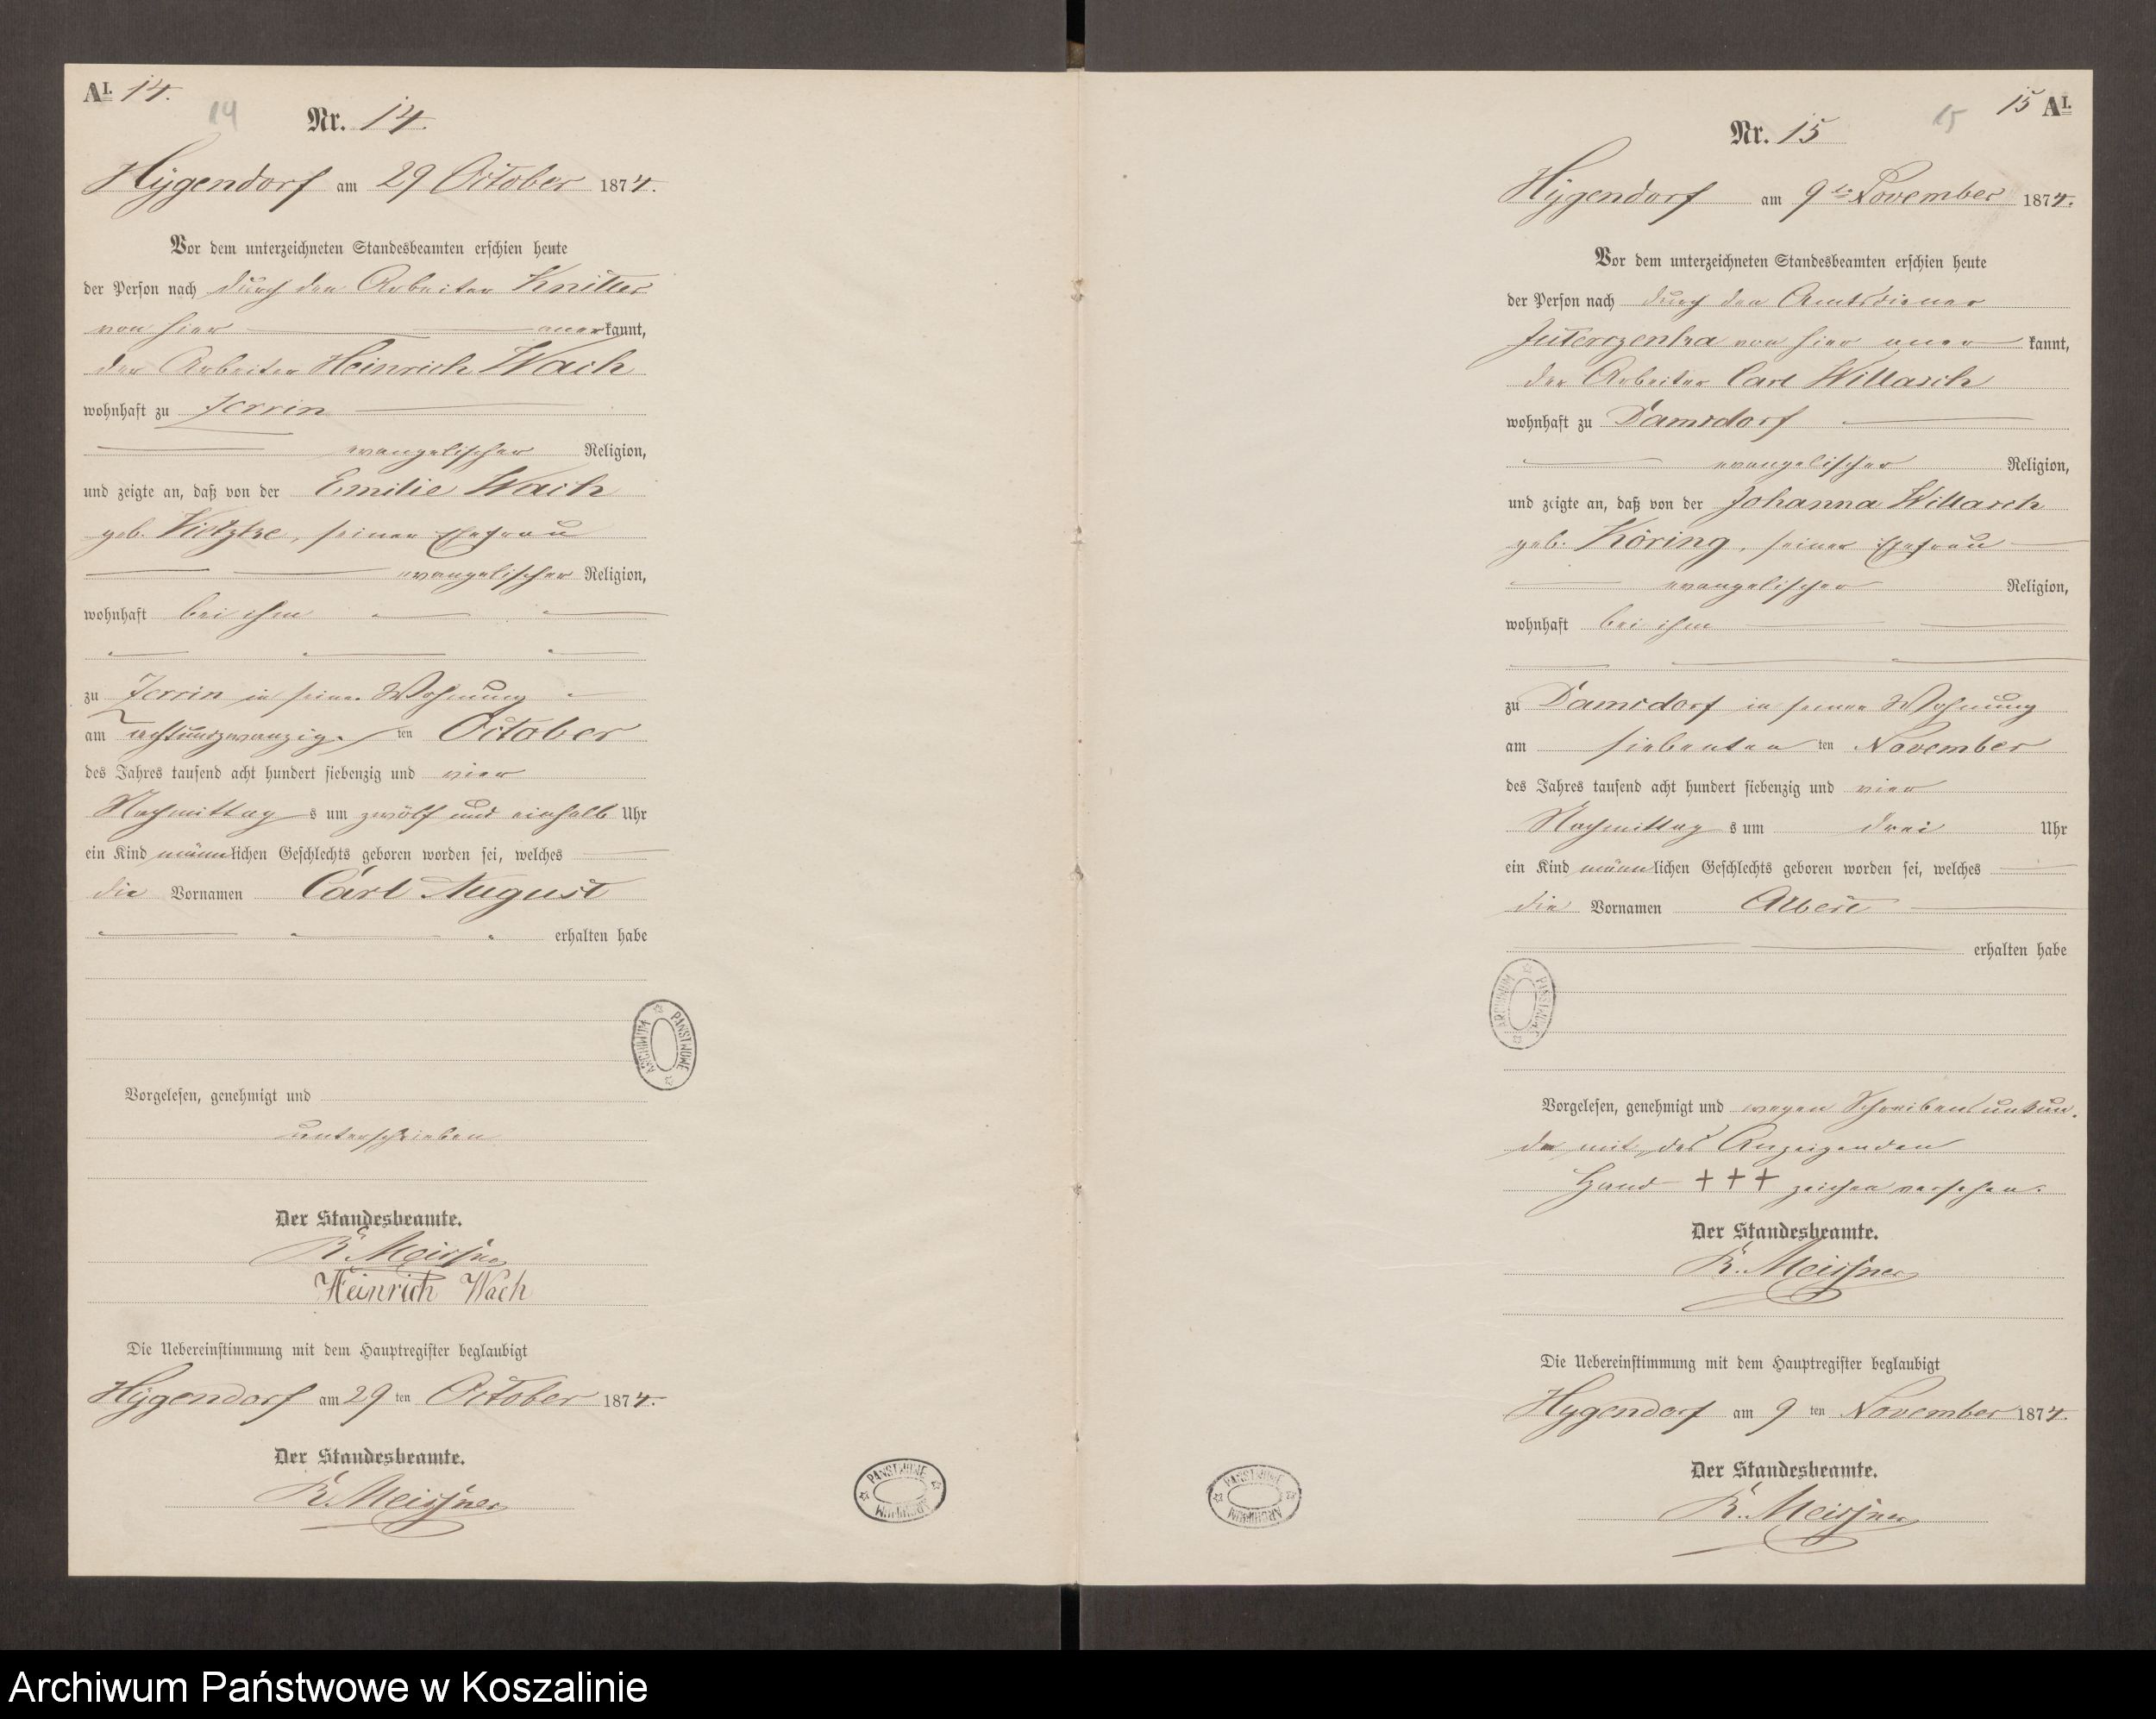 AI. 14.
14
Nr. 14.
Hygendorf am 29 October 1874.
Vor dem unterzeichneten Standesbeamten erschien heute
der Person nach durch den Arbeiter Knitter
von hier anerkannt,
der Arbeiter Heinrich Wach
wohnhaft zu Jerrin
evangelischer Religion,
und zeigte an, daß von der Emilie Wach
geb. seiner Ehefrau
evangelischer Religion,
wohnhaft bei ihm
zu Jerrin in seiner Wohnung
am achtundzwanzig ten October
des Jahres tausend acht hundert siebenzig und vier
Nachmittags um zwölf und einhalb Uhr
ein Kind männlichen Geschlechts geboren worden sei, welches
die Vornamen Carl August
erhalten habe
Vorgelesen, genehmigt und
unterschrieben
Der Standesbeamte.
R. Meissner
Heinrich Wach
Die Uebereinstimmung mit dem Hauptregister beglaubigt
Hygendorf am 29 ten October 1874.
Der Standesbeamte.
R. Meissner
ARCHIWUM PAŃSTWOWE
PAŃSTWOWE ARCHIWUM
15 AI.
15
Nr. 15
Hygendorf am 9 November 1874.
Vor dem unterzeichneten Standesbeamten erschien heute
der Person nach durch den Amtsdiener
Juterczenka von hier anerkannt,
der Arbeiter Carl Willasch
wohnhaft zu Damsdorf
evangelischer Religion,
und zeigte an, daß von der Johanna Willasch
geb. Köring, seiner Ehefrau
evangelischer Religion,
wohnhaft bei ihm
zu Damsdorf in seiner Wohnung
am siebenten ten November
des Jahres tausend acht hundert siebenzig und vier
Nachmittags um drei Uhr
ein Kind männlichen Geschlechts geboren worden sei, welches
die Vornamen Albert
erhalten habe
Vorgelesen, genehmigt und wegen Schreibensunkun-
de mit des Anzeigenden
Hand +++ zeichen versehen.
Der Standesbeamte.
R. Meissner
Die Uebereinstimmung mit dem Hauptregister beglaubigt
Hygendorf am 9 ten November 1874.
Der Standesbeamte.
R. Meissner
ARCHIWUM PAŃSTWOWE
PAŃSTWOWE ARCHIWUM
Archiwum Państwowe w Koszalinie